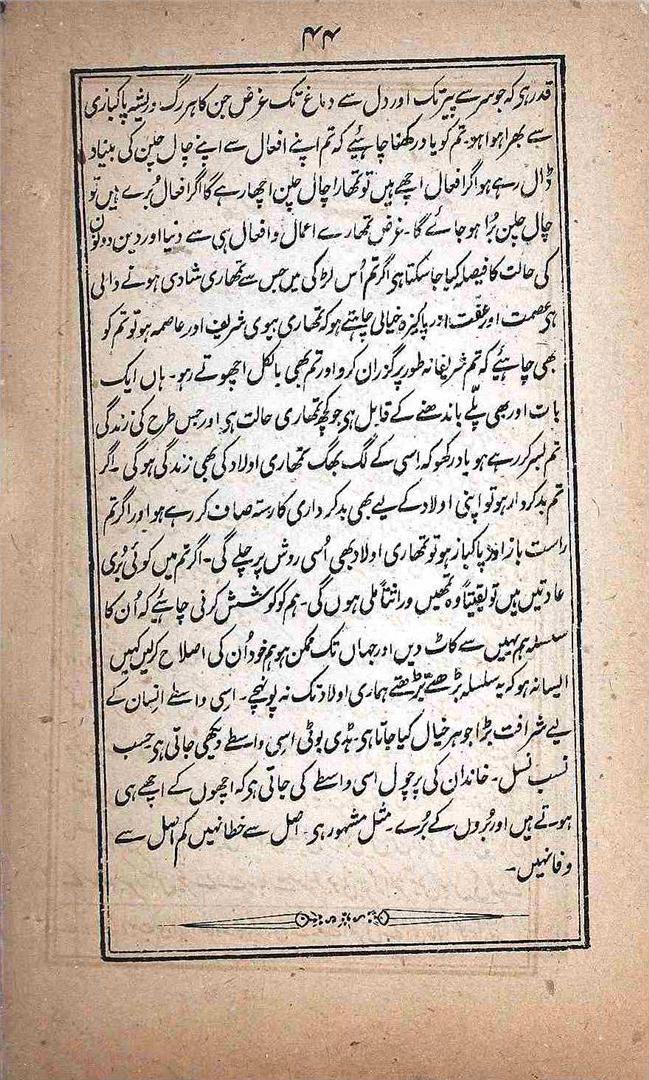 ۴۴
قدر ہی کہ جو سر سے پیر تک اور دل سے دماغ تک غرض جن کا ہر رگ وریشہ پاکبازی
سے بھرا ہوا ہو۔ تم کو یاد رکھنا چاہئیے کہ تم اپنے افعال سے اپنے چال چلن کی بنیاد
ڈال رہے ہو اگر افعال اچھے ہیں تو تمھارا چال چلن اچھا رہے گا اگر افعال بُرے ہیں تو
چال چلن بُرا ہو جائے گا۔ غرض تمھارے اعمال وافعال ہی سے دنیا اور دین دونوں
کی حالت کا فیصلہ کیا جا سکتا ہی اگر تم اُس لڑکی میں جس سے تمھاری شادی ہونے والی
ہی عصمت اور عفّت اور پاکیزہ خیالی چاہتے ہو کہ تمھاری بیوی شریف اور عاصمہ ہو تو تم کو
بھی چاہئیے کہ تم شریفانہ طور پر گزران کرو اور تم بھی بالکل اچھوتے رہو۔ ہاں ایک
بات اور بھی پلّے باندھنے کے قابل ہی جو کچھ تمھاری حالت ہی اور جس طرح کی زندگی
تم بسر کر رہے ہو یاد رکھو کہ اسی کے لگ بھگ تمھاری اولاد کی بھی زندگی ہوگی۔ اگر
تم بدکردار ہو تو اپنی اولاد کے لیے بھی بدکرداری کا رستہ صاف کر رہے ہو اور اگر تم
راست باز اور پاکباز ہو تو تمھاری اولاد بھی اُسی روش پر چلے گی۔ اگر تم میں کوئی بُری
عادتیں ہیں تو یقیناً وہ تمھیں وراثتاً ملی ہوں گی۔ ہم کو کوشش کرنی چاہئیے کہ اُن کا
سلسلہ ہم یہیں سے کاٹ دیں اور جہاں تک ممکن ہو ہم خود اُن کی اصلاح کر لیں کہیں
ایسا نہ ہو کہ یہ سلسلہ بڑھتے بڑھتے ہماری اولاد تک نہ پونہچے۔ اسی واسطے انسان کے
لیے شرافت بڑا جوہر خیال کیا جاتا ہی۔ ہڈی بوٹی اسی واسطے دیکھی جاتی ہی حسب
نسب نسل۔ خاندان کی پرچول اسی واسطے کی جاتی ہی کہ اچھوں کے اچھے ہی
ہوتے ہیں اور بُروں کے بُرے۔ مثل مشہور ہی۔ اصل سے خطا نہیں کم اصل سے
وفا نہیں۔